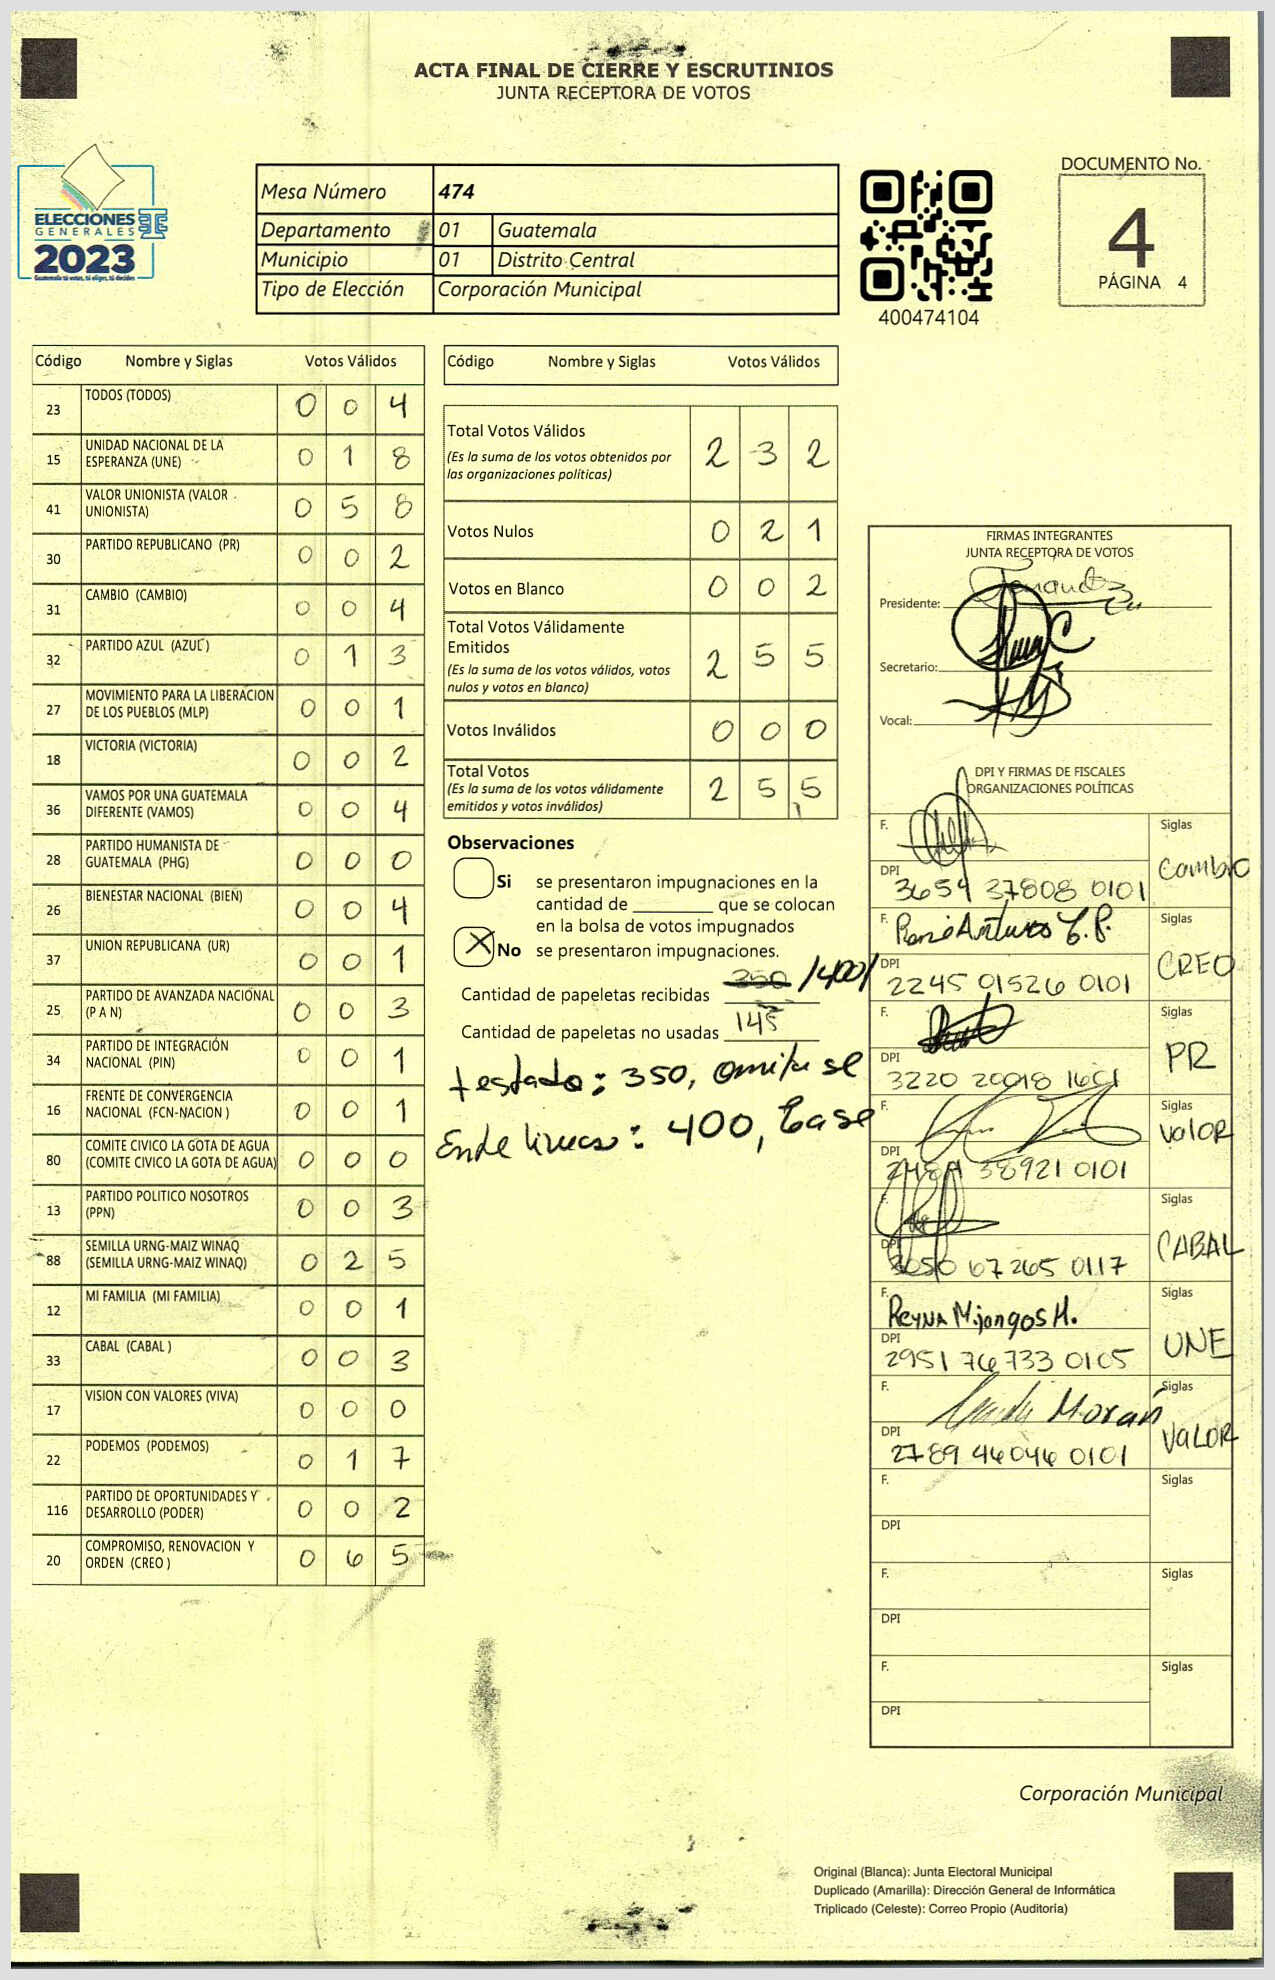 ACTA FINAL DE CIERRE Y ESCRUTINIOS
JUNTA RECEPTORA DE VOTOS
ELECCIONES
GENERALES
2023
Guatemala tú votas, tú eliges, tú decides
Mesa Número 474
Departamento 01 Guatemala
Municipio 01 Distrito Central
Tipo de Elección Corporación Municipal
400474104
DOCUMENTO No.
4
PÁGINA 4
Código Nombre y Siglas Votos Válidos
23 TODOS (TODOS) 0 0 4
15 UNIDAD NACIONAL DE LA
ESPERANZA (UNE) 0 1 8
41 VALOR UNIONISTA (VALOR
UNIONISTA) 0 5 8
30 PARTIDO REPUBLICANO (PR) 0 0 2
31 CAMBIO (CAMBIO) 0 0 4
32 PARTIDO AZUL (AZUL) 0 1 3
27 MOVIMIENTO PARA LA LIBERACION
DE LOS PUEBLOS (MLP) 0 0 1
18 VICTORIA (VICTORIA) 0 0 2
36 VAMOS POR UNA GUATEMALA
DIFERENTE (VAMOS) 0 0 4
28 PARTIDO HUMANISTA DE
GUATEMALA (PHG) 0 0 0
26 BIENESTAR NACIONAL (BIEN) 0 0 4
37 UNION REPUBLICANA (UR) 0 0 1
25 PARTIDO DE AVANZADA NACIONAL
(P A N) 0 0 3
34 PARTIDO DE INTEGRACIÓN
NACIONAL (PIN) 0 0 1
16 FRENTE DE CONVERGENCIA
NACIONAL (FCN-NACION ) 0 0 1
80 COMITE CIVICO LA GOTA DE AGUA
(COMITE CIVICO LA GOTA DE AGUA) 0 0 0
13 PARTIDO POLITICO NOSOTROS
(PPN) 0 0 3
88 SEMILLA URNG-MAIZ WINAQ
(SEMILLA URNG-MAIZ WINAQ) 0 2 5
12 MI FAMILIA (MI FAMILIA) 0 0 1
33 CABAL (CABAL ) 0 0 3
17 VISION CON VALORES (VIVA) 0 0 0
22 PODEMOS (PODEMOS) 0 1 7
116 PARTIDO DE OPORTUNIDADES Y
DESARROLLO (PODER) 0 0 2
20 COMPROMISO, RENOVACION Y
ORDEN (CREO ) 0 6 5
Código Nombre y Siglas Votos Válidos
Total Votos Válidos
(Es la suma de los votos obtenidos por
las organizaciones políticas) 2 3 2
Votos Nulos 0 2 1
Votos en Blanco 0 0 2
Total Votos Válidamente
Emitidos
(Es la suma de los votos válidos, votos
nulos y votos en blanco) 2 5 5
Votos Inválidos 0 0 0
Total Votos
(Es la suma de los votos válidamente
emitidos y votos inválidos) 2 5 5
Observaciones
Si se presentaron impugnaciones en la
cantidad de ________ que se colocan
en la bolsa de votos impugnados
X No se presentaron impugnaciones.
Cantidad de papeletas recibidas 350 /400/
Cantidad de papeletas no usadas 145
testado: 350, omitase
Entre lineas: 400, lease
FIRMAS INTEGRANTES
JUNTA RECEPTORA DE VOTOS
Presidente:
Secretario:
Vocal:
DPI Y FIRMAS DE FISCALES
ORGANIZACIONES POLÍTICAS
F. Siglas
Cambio
DPI 3654 37808 0101
F. René Arturo Siglas
CREO
DPI 2245 01526 0101
F. Siglas
PR
DPI 3220 20018 1601
F. Siglas
VALOR
DPI 38921 0101
F. Siglas
CABAL
DPI 3050 67265 0117
F. Reyna Mijangos H. Siglas
UNE
DPI 2951 76733 0105
F. Morán Siglas
VALOR
DPI 2789 46046 0101
F. Siglas
DPI
F. Siglas
DPI
F. Siglas
DPI
Corporación Municipal
Original (Blanca): Junta Electoral Municipal
Duplicado (Amarilla): Dirección General de Informática
Triplicado (Celeste): Correo Propio (Auditoría)